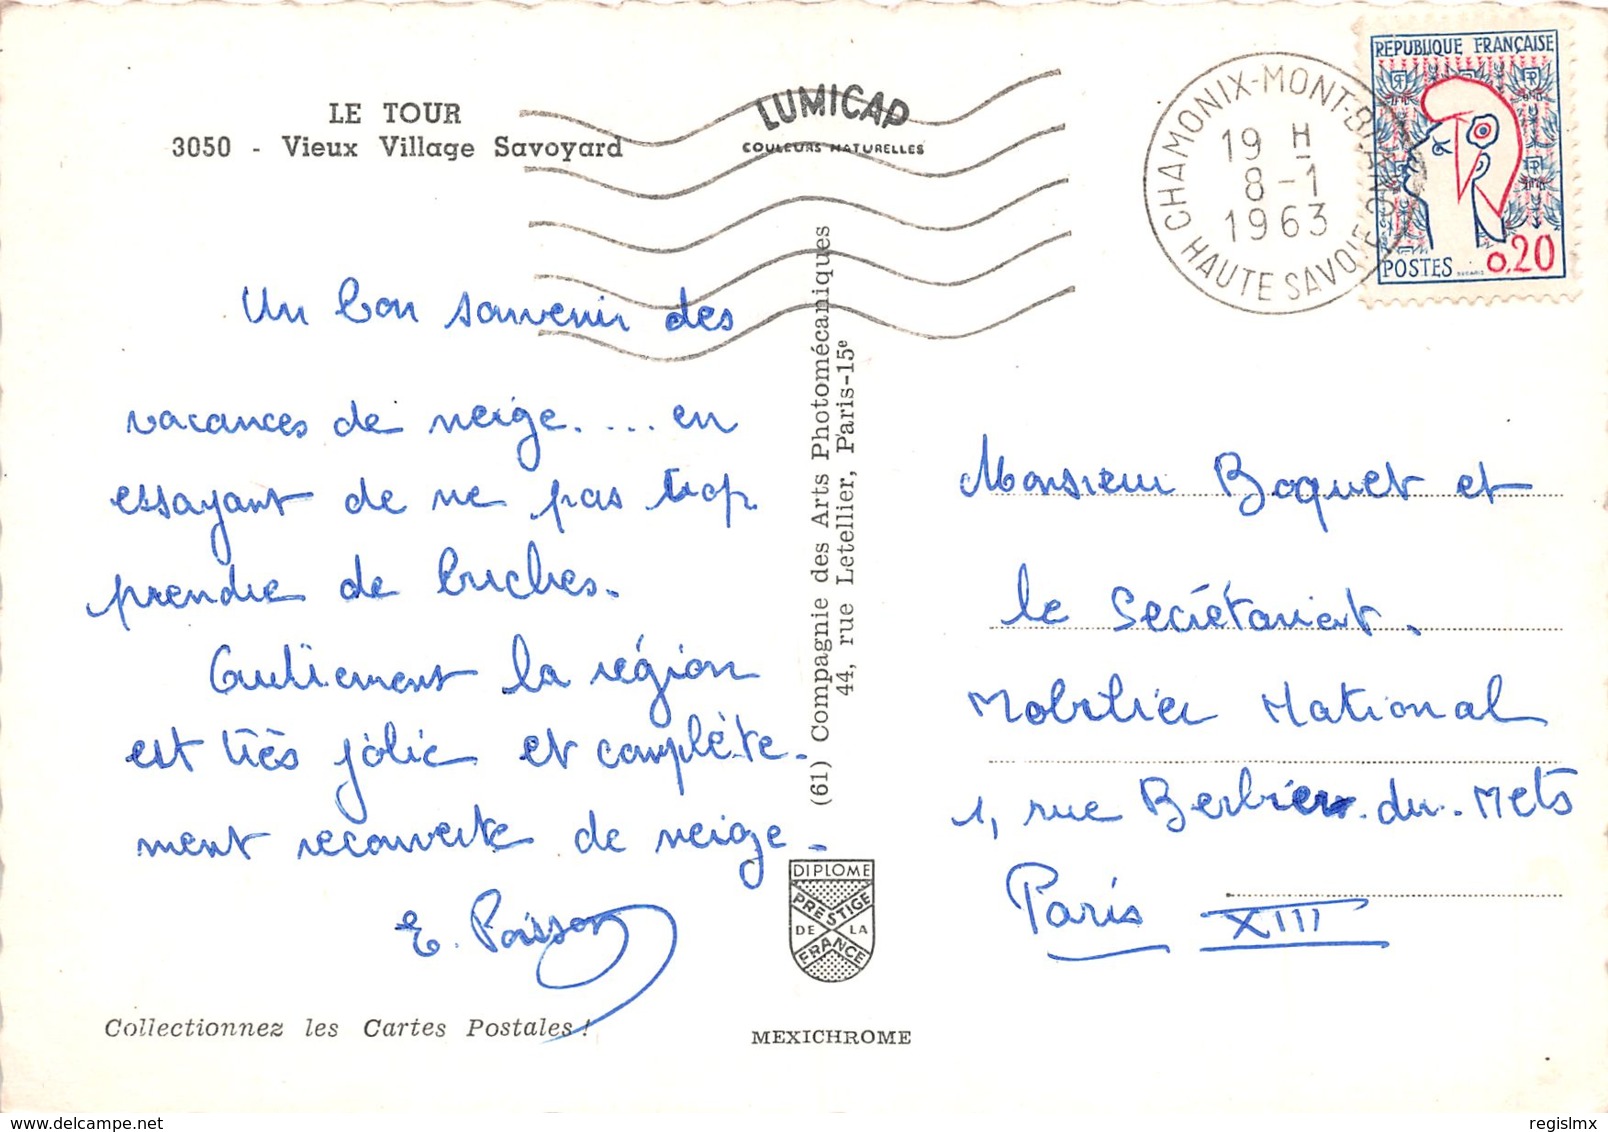 LE TOUR
3050 - Vieux Village Savoyard
LUMICAP
COULEURS NATURELLES
CHAMONIX-MONT-BLANC
HAUTE SAVOIE
19 H
8-1
1963
REPUBLIQUE FRANÇAISE
POSTES 0,20
Un bon souvenir des
vacances de neige.... en
essayant de ne pas trop
prendre de bûches.
Autrement la région
est très jolie et complète-
ment recouverte de neige.
E. Poisson
Collectionnez les Cartes Postales!
(61) Compagnie des Arts Photomécaniques
44, rue Letellier, Paris-15e
DIPLOME
PRESTIGE
DE LA
FRANCE
MEXICHROME
Monsieur Boquet et
le Secrétariat.
Mobilier National
1, rue Berbier-du-Mets
Paris XIII
regislmx